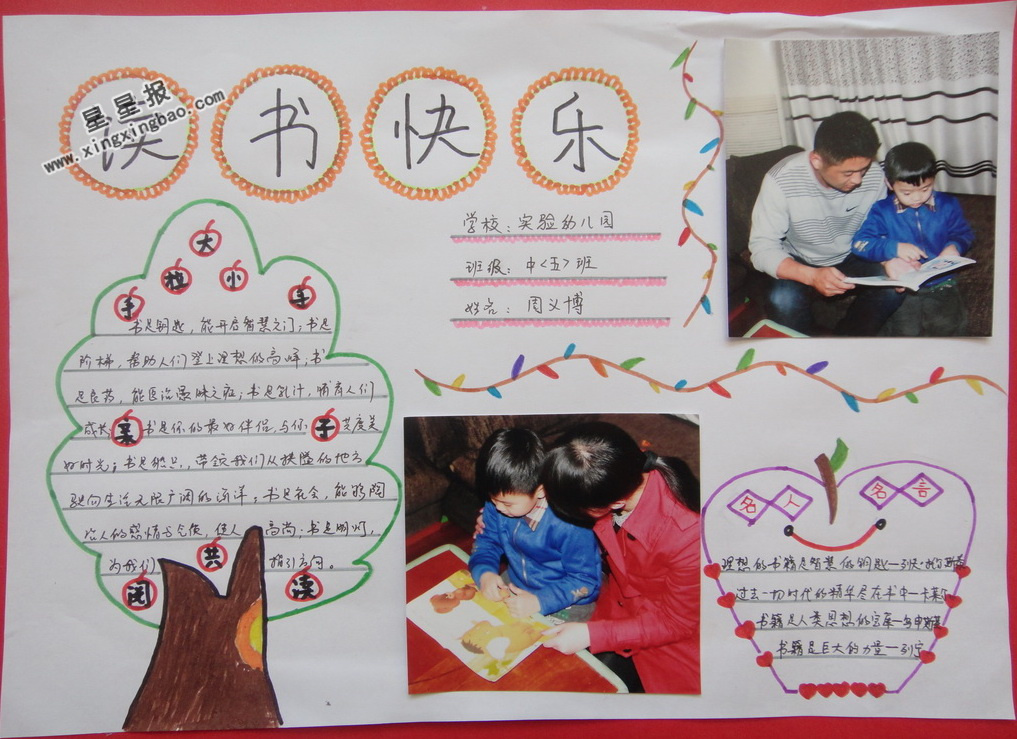 读书快乐
星星报
www.xingxingbao.com
学校：实验幼儿园
班级：中〈五〉班
姓名：周义博
大
拉 小
手 手
书是钥匙，能开启智慧之门；书是
阶梯，帮助人们登上理想的高峰；书
是良药，能医治愚昧之症；书是乳汁，哺育人们
成长 亲 书是你的最好伴侣，与你 子 共度美
好时光；书是 ，带领我们从狭隘的地方
驶向生活无限广阔的海洋；书是社会，能
人的感情与气质，使人 高尚；书是明灯，
为我们 共 指引方向。
阅 读
名人 名言
理想的书籍是智慧的钥匙—列夫·托尔斯泰
过去一切时代的精华尽在书中—卡莱尔
书籍是人类思想的宝库—乌申斯基
书籍是巨大的力量—列宁